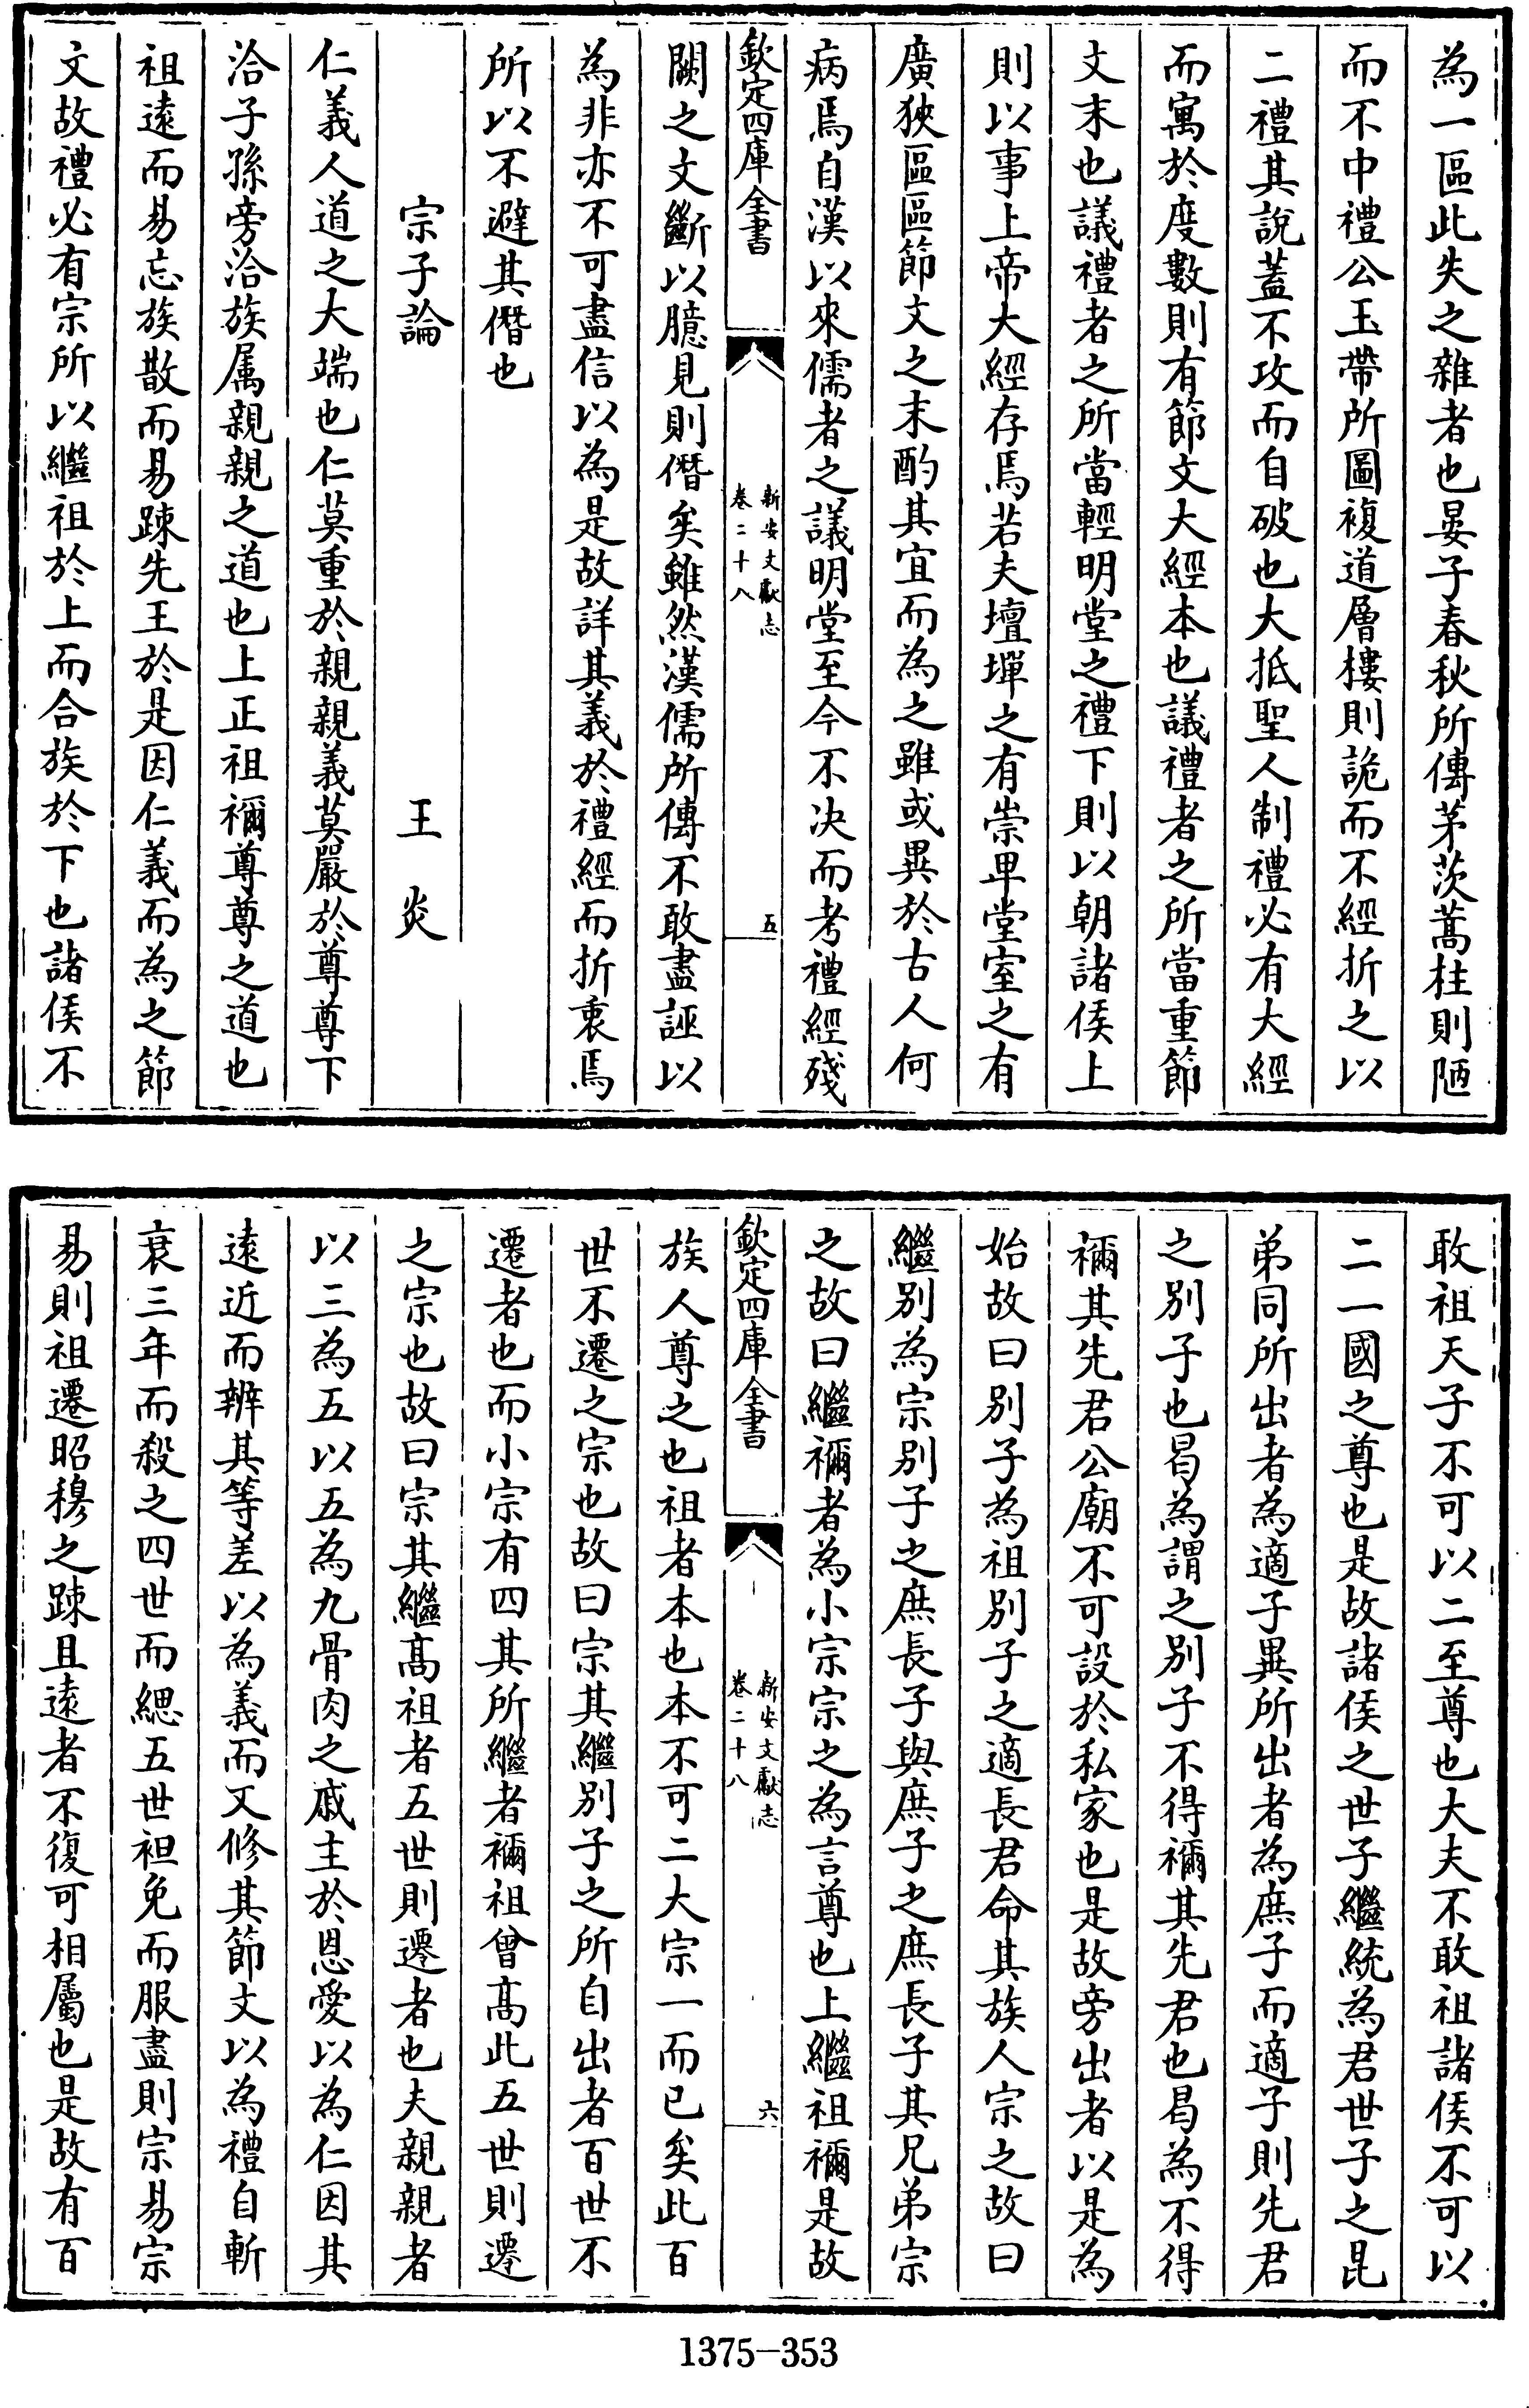 為一區此失之雜者也晏子春秋所傳茅茨蒿柱則陋
而不中禮公玉帶所圖複道層樓則詭而不經折之以
二禮其說蓋不攻而自破也大抵聖人制禮必有大經
而寓於度數則有節文大經本也議禮者之所當重節
文末也議禮者之所當輕明堂之禮下則以朝諸侯上
則以事上帝大經存焉若夫壇墠之有崇卑堂室之有
廣狹區區節文之末酌其宜而為之雖或異於古人何
病焉自漢以來儒者之議明堂至今不决而考禮經殘
欽定四庫全書
新安文獻志
卷二十八
五
闕之文斷以臆見則僭矣雖然漢儒所傳不敢盡誣以
為非亦不可盡信以為是故詳其義於禮經而折衷焉
所以不避其僭也
宗子論 王炎
仁義人道之大端也仁莫重於親親義莫嚴於尊尊下
洽子孫旁洽族属親親之道也上正祖禰尊尊之道也
祖逺而易忘族散而易踈先王於是因仁義而為之節
文故禮必有宗所以繼祖於上而合族於下也諸侯不
敢祖天子不可以二至尊也大夫不敢祖諸侯不可以
二一國之尊也是故諸侯之世子繼統為君世子之昆
弟同所出者為適子異所出者為庶子而適子則先君
之别子也曷為謂之别子不得禰其先君也曷為不得
禰其先君公廟不可設於私家也是故旁出者以是為
始故曰别子為祖别子之適長君命其族人宗之故曰
繼别為宗别子之庶長子與庶子之庶長子其兄弟宗
之故曰繼禰者為小宗宗之為言尊也上繼祖禰是故
欽定四庫全書
新安文獻志
卷二十八
六
族人尊之也祖者本也本不可二大宗一而已矣此百
世不遷之宗也故曰宗其繼别子之所自出者百世不
遷者也而小宗有四其所繼者禰祖曾髙此五世則遷
之宗也故曰宗其繼髙祖者五世則遷者也夫親親者
以三為五以五為九骨肉之戚主於恩愛以為仁因其
逺近而辨其等差以為義而又修其節文以為禮自斬
衰三年而殺之四世而緦五世袒免而服盡則宗易宗
易則祖遷昭穆之踈且逺者不復可相屬也是故有百
1375-353